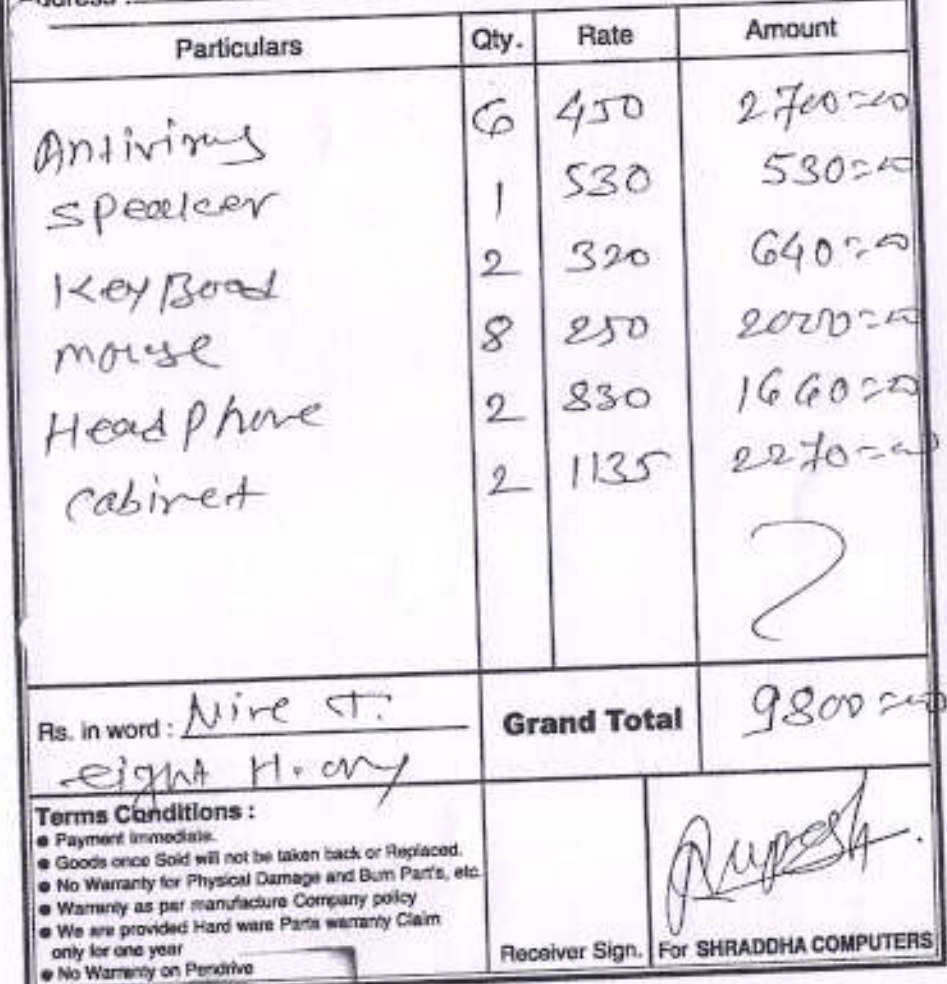 Particulars Qty. Rate Amount
Antivirus 6 450 2700=00
Speaker 1 530 530=00
KeyBoad 2 320 640=00
mouse 8 250 2000=00
Head Phone 2 830 1660=00
cabinet 2 1135 2270=00
Rs. in word : Nine T. Grand Total 9800=00
eight H. only
Terms Conditions :
● Payment Immediate.
● Goods once Sold will not be taken back or Replaced.
● No Warranty for Physical Damage and Burn Part's, etc.
● Warranty as per manufacture Company policy
● We are provided Hard ware Parts warranty Claim
only for one year
● No Warranty on Pendrive
Rupesh.
Receiver Sign. For SHRADDHA COMPUTERS